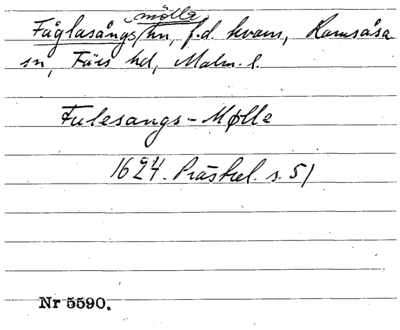 mölla
Fåglasångs/hn, f.d. kvarn, Ramsåsa
sn, Färs hd, Malm. l.
Fulesangs-Mølle
1624. Prästrel. s. 51
Nr 5590.